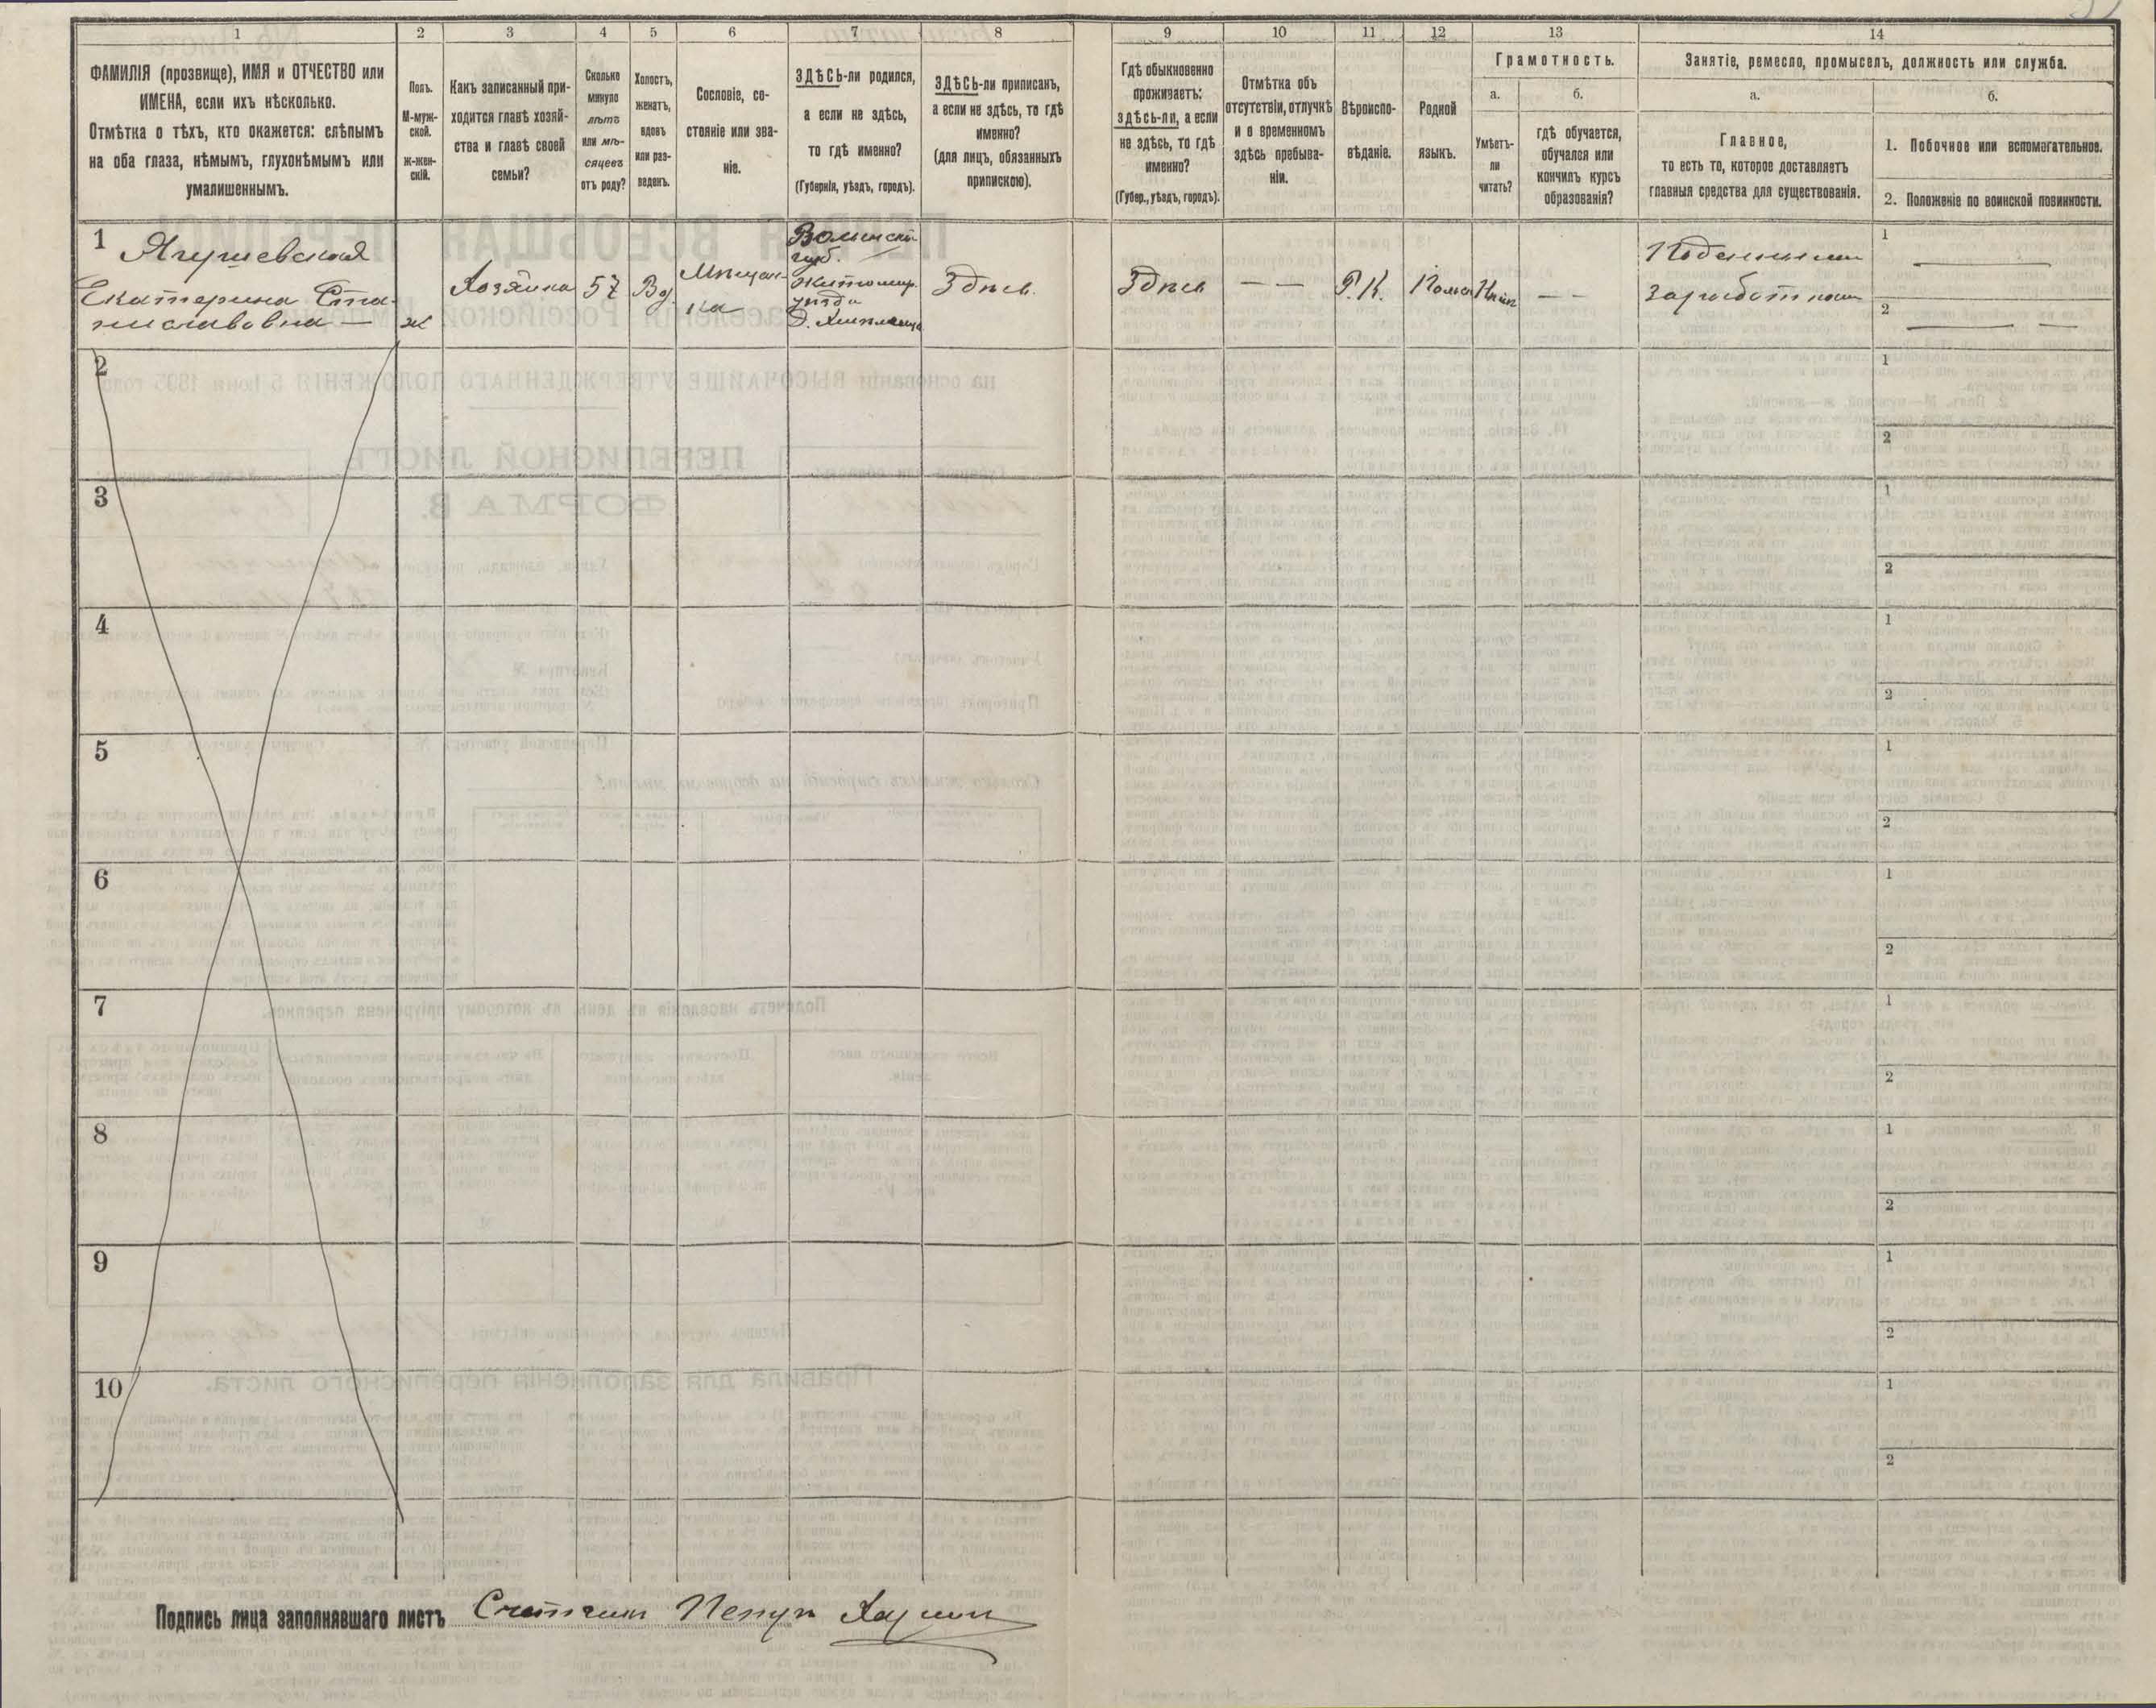 1
2
3
4
5
6
7
8
9
10
11
12
13
14
ФАМИЛІЯ (прозвище), ИМЯ и ОТЧЕСТВО или
ИМЕНА, если ихъ нѣсколько.
Отмѣтка о тѣхъ, кто окажется: слѣпымъ
на оба глаза, нѣмымъ, глухонѣмымъ или
умалишеннымъ.
Полъ.
М-муж-
ской.
ж-жен-
скій.
Какъ записанный при-
ходится главѣ хозяй-
ства и главѣ своей
семьи?
Сколько
минуло
лѣтъ
или мѣ-
сяцевъ
отъ роду?
Холостъ,
женатъ,
вдовъ
или раз-
веденъ.
Сословіе, со-
стояніе или зва-
ніе.
ЗДѢСЬ-ли родился,
а если не здѣсь,
то гдѣ именно?
(Губернія, уѣздъ, городъ).
ЗДѢСЬ-ли приписанъ,
а если не здѣсь, то гдѣ
именно?
(для лицъ, обязанныхъ
припискою).
Гдѣ обыкновенно
проживаетъ:
здѣсь-ли, а если
не здѣсь, то гдѣ
именно?
(Губер., уѣздъ, городъ).
Отмѣтка объ
отсутствіи, отлучкѣ
и о временномъ
здѣсь пребыва-
ніи.
Вѣроиспо-
вѣданіе.
Родной
языкъ.
Грамотность.
а.
Умѣетъ-
ли
читать?
б.
гдѣ обучается,
обучался или
кончилъ курсъ
образованія?
Занятіе, ремесло, промыселъ, должность или служба.
а.
Главное,
то есть то, которое доставляетъ
главныя средства для существованія.
б.
1. Побочное или вспомагательное.
2. Положеніе по воинской повинности.
1
Екатерина Ста-
ниславовна —
ж
Хозяйка
57
Вд.
Мѣщан-
ка
Волынской
губ.
Житомир.
уѣзда
Здѣсь
Здѣсь
— —
Р.К.
— —
Поденными
заработками
1
2
2
1
2
3
1
2
4
1
2
5
1
2
6
1
2
7
1
2
8
1
2
9
1
2
10
1
2
Подпись лица заполнявшаго листъ Счетчикъ